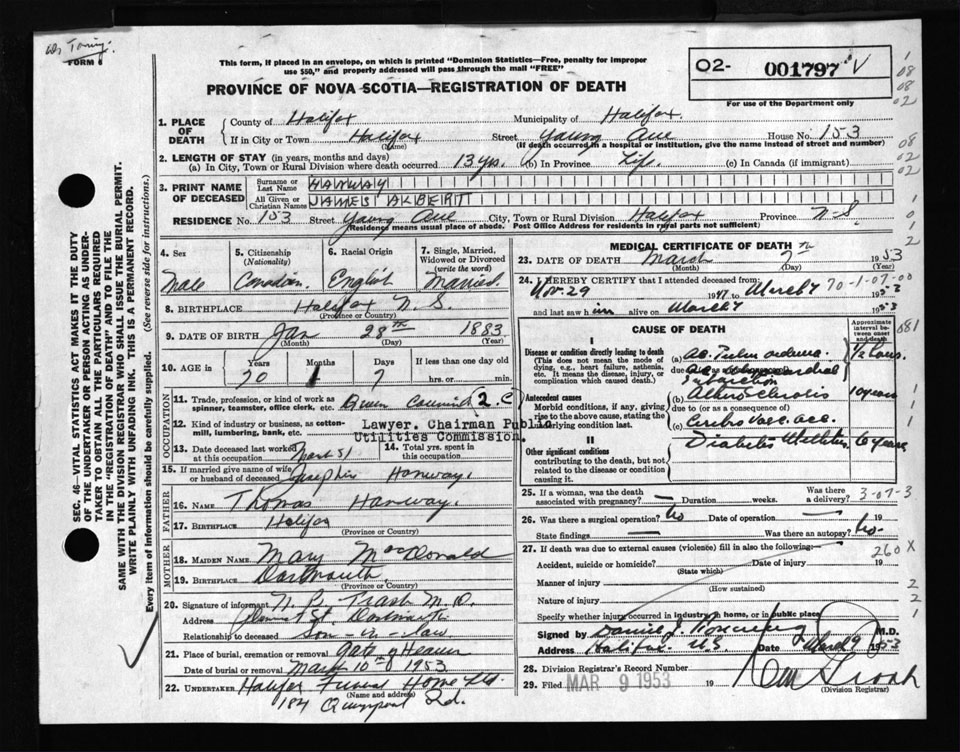 FORM 6
This form, if placed in an envelope, on which is printed "Dominion Statistics—Free, penalty for improper
use $50," and properly addressed will pass through the mail "FREE"
O2- 001797 V
For use of the Department only
PROVINCE OF NOVA SCOTIA—REGISTRATION OF DEATH
1. PLACE OF DEATH
County of Halifax Municipality of Halifax.
If in City or Town Halifax Street Young Ave House No. 153
(Name) (If death occurred in a hospital or institution, give the name instead of street and number)
2. LENGTH OF STAY (in years, months and days)
(a) In City, Town or Rural Division where death occurred 13 yrs. (b) In Province Life. (c) In Canada (if immigrant)
3. PRINT NAME OF DECEASED
Surname or Last Name HANWAY
All Given or Christian Names JAMES ALBERT
RESIDENCE No. 153 Street Young Ave City, Town or Rural Division Halifax Province N-S
(Residence means usual place of abode. Post Office Address for residents in rural parts not sufficient)
4. Sex
Male
5. Citizenship (Nationality)
Canadian
6. Racial Origin
English
7. Single, Married, Widowed or Divorced (write the word)
Married.
8. BIRTHPLACE Halifax N. S
(Province or Country)
9. DATE OF BIRTH Jan 28th 1883
(Month) (Day) (Year)
10. AGE in
Years 70
Months 1
Days 7
If less than one day old
hrs. or min.
OCCUPATION
11. Trade, profession, or kind of work as spinner, teamster, office clerk, etc.
12. Kind of industry or business, as cotton-mill, lumbering, bank, etc.
Lawyer. Chairman Public
Utilities Commission.
13. Date deceased last worked at this occupation
14. Total yrs. spent in this occupation
15. If married give name of wife or husband of deceased Josephine Hanway.
FATHER
16. NAME Thomas Hanway.
17. BIRTHPLACE Halifax
(Province or Country)
MOTHER
18. MAIDEN NAME Mary MacDonald
19. BIRTHPLACE Dartmouth
(Province or Country)
20. Signature of informant Trask M. D.
Address St. Dartmouth
Relationship to deceased Son-in-law
21. Place of burial, cremation or removal Gate of Heaven
Date of burial or removal Mar 10th 1953
22. UNDERTAKER Halifax Funeral Home Ltd.
(Name and address)
184 Quinpool Rd.
MEDICAL CERTIFICATE OF DEATH
23. DATE OF DEATH March 7th 1953
(Month) (Day) (Year)
24. I HEREBY CERTIFY that I attended deceased from:
Nov. 29 1947 to March 7 1953
70-1-07-00
and last saw him alive on March 7 1953
CAUSE OF DEATH
Approximate interval between onset and death
I
Disease or condition directly leading to death
(This does not mean the mode of dying, e.g., heart failure, asthma, etc. It means the disease, injury, or complication which caused death.)
(a) Ac. Pulm. oedema. 1/2 hour.
due to
Antecedent causes
Morbid conditions, if any, giving rise to the above cause, stating the underlying condition last.
(b) 10 years
due to (or as a consequence of)
II
Other significant conditions
contributing to the death, but not related to the disease or condition causing it.
Diabetes Mellitus 6 years
081
25. If a woman, was the death associated with pregnancy? — Duration weeks. Was there a delivery? 3-07-3
26. Was there a surgical operation? No Date of operation — 19
State findings — Was there an autopsy? No.
27. If death was due to external causes (violence) fill in also the following:—
260 X
Accident, suicide or homicide? Date of injury 19
(State which)
Manner of injury
(How sustained)
Nature of injury
Specify whether injury occurred in industry, in home, or in public place
Signed by Daniel M.D.
Address Halifax N.S Date March 9 1953
28. Division Registrar's Record Number
29. Filed MAR 9 1953 19
(Division Registrar)
SEC. 46—VITAL STATISTICS ACT MAKES IT THE DUTY
OF THE UNDERTAKER OR PERSON ACTING AS UNDERTAKER TO OBTAIN ALL THE PARTICULARS REQUIRED
IN THE "REGISTRATION OF DEATH" AND TO FILE THE
SAME WITH THE DIVISION REGISTRAR WHO SHALL ISSUE THE BURIAL PERMIT.
WRITE PLAINLY WITH UNFADING INK. THIS IS A PERMANENT RECORD.
Every item of information should be carefully supplied. (See reverse side for instructions.)